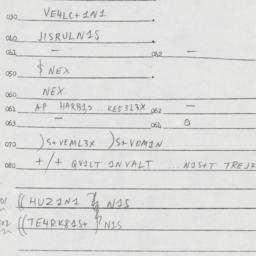 030 VE4LC+1N1
040 JISRULN1S
041 — 042 —
050 $ NEX
060 NEX
061 AP HARB1S...KE53L3X 062 —
063 — 064 0
070 )S+VEML3X )S+VOM1N
080 +/+ QV1LT 1NVALT ...N1S+T TREJ
01 ((HUZ1N1 } N1S
02 ((TE4RK81S+ } N1S